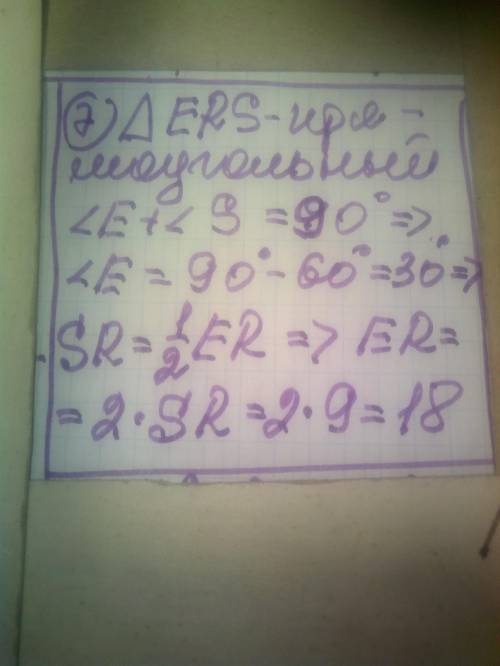 7) △ ERS - пря-
моугольный
<E + < S = 90° =>
<E = 90° - 60° = 30° =>
SR = 1/2 ER => ER =
= 2 · SR = 2 · 9 = 18